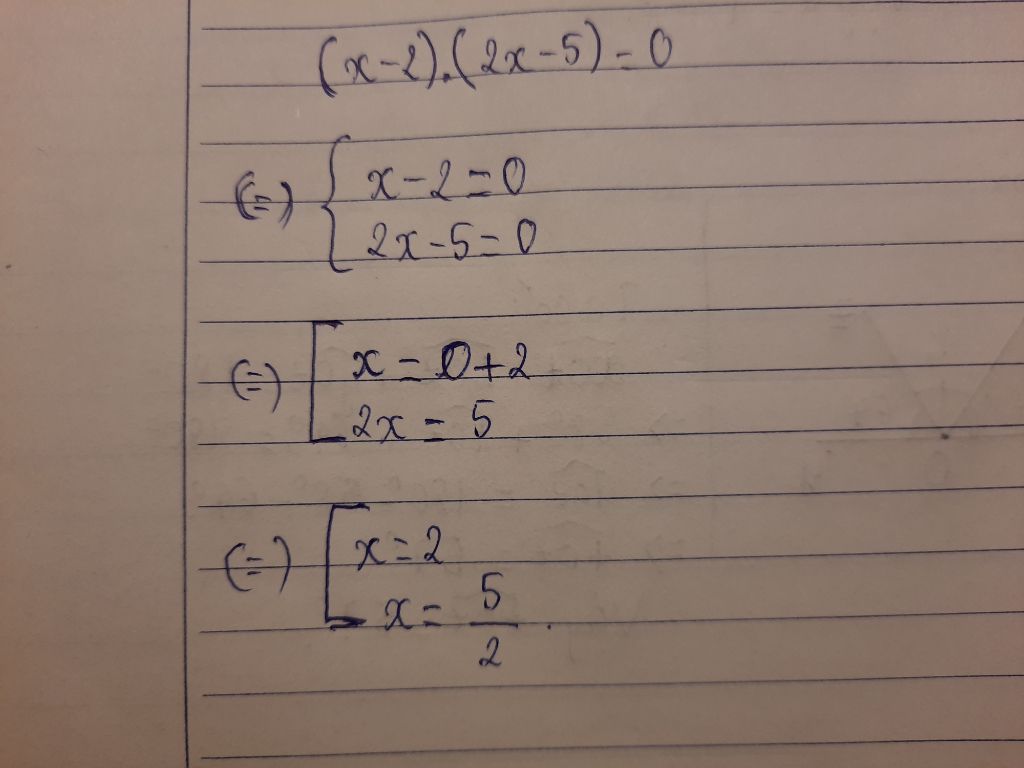 (x-2).(2x-5)=0
(=) { x-2=0
2x-5=0
(=) [ x=0+2
2x=5
(=) [ x=2
x=5/2.